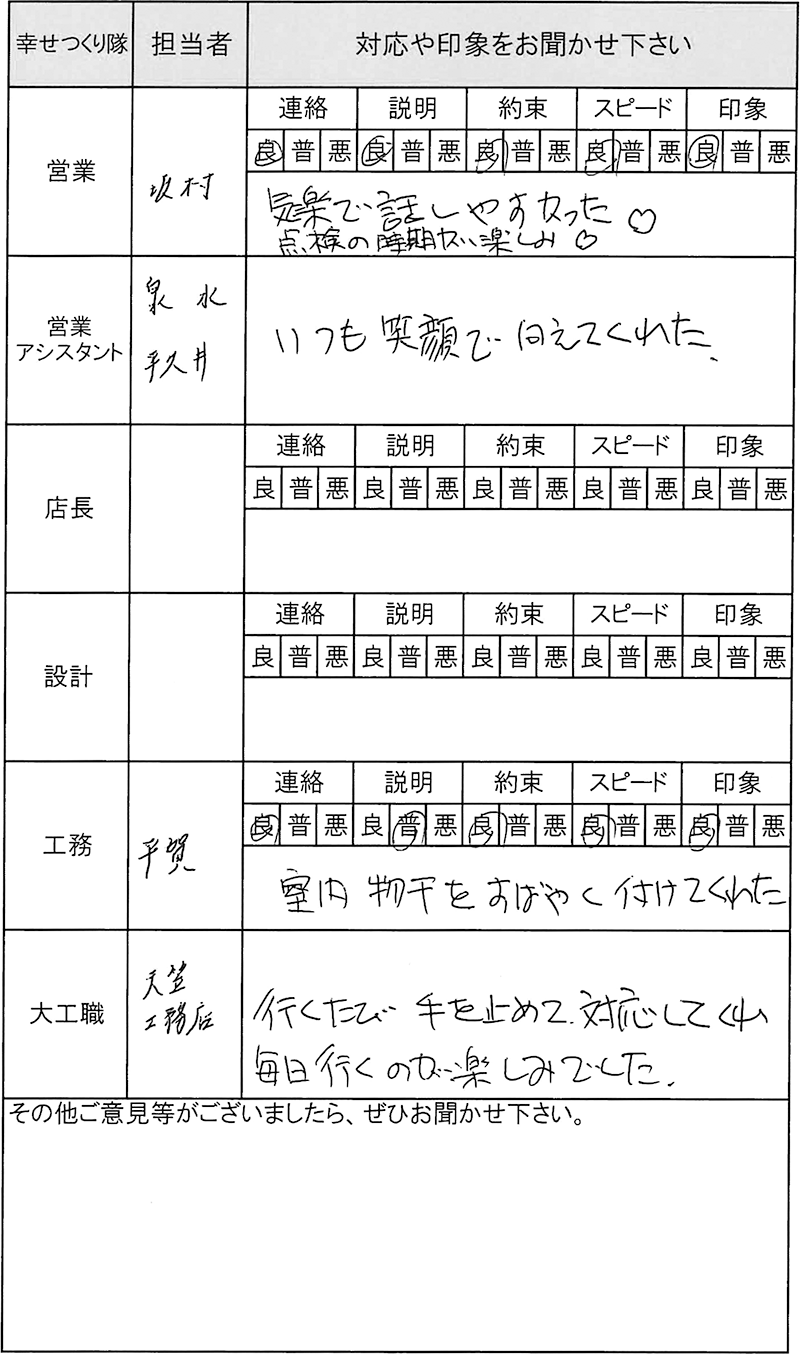 幸せつくり隊 担当者 対応や印象をお聞かせ下さい
連絡 説明 約束 スピード 印象
良 普 悪 良 普 悪 良 普 悪 良 普 悪 良 普 悪
営業 坂村
気楽で話しやすかった♡
点検の時期が楽しみ♡
営業
アシスタント
泉水
平久井
いつも笑顔で向えてくれた.
店長
連絡 説明 約束 スピード 印象
良 普 悪 良 普 悪 良 普 悪 良 普 悪 良 普 悪
設計
連絡 説明 約束 スピード 印象
良 普 悪 良 普 悪 良 普 悪 良 普 悪 良 普 悪
工務 平賀
連絡 説明 約束 スピード 印象
良 普 悪 良 普 悪 良 普 悪 良 普 悪 良 普 悪
室内物干をすばやく付けてくれた
大工職
天笠
工務店
行くたび手を止めて.対応してくれ
毎日行くのが楽しみでした.
その他ご意見等がございましたら、ぜひお聞かせ下さい。